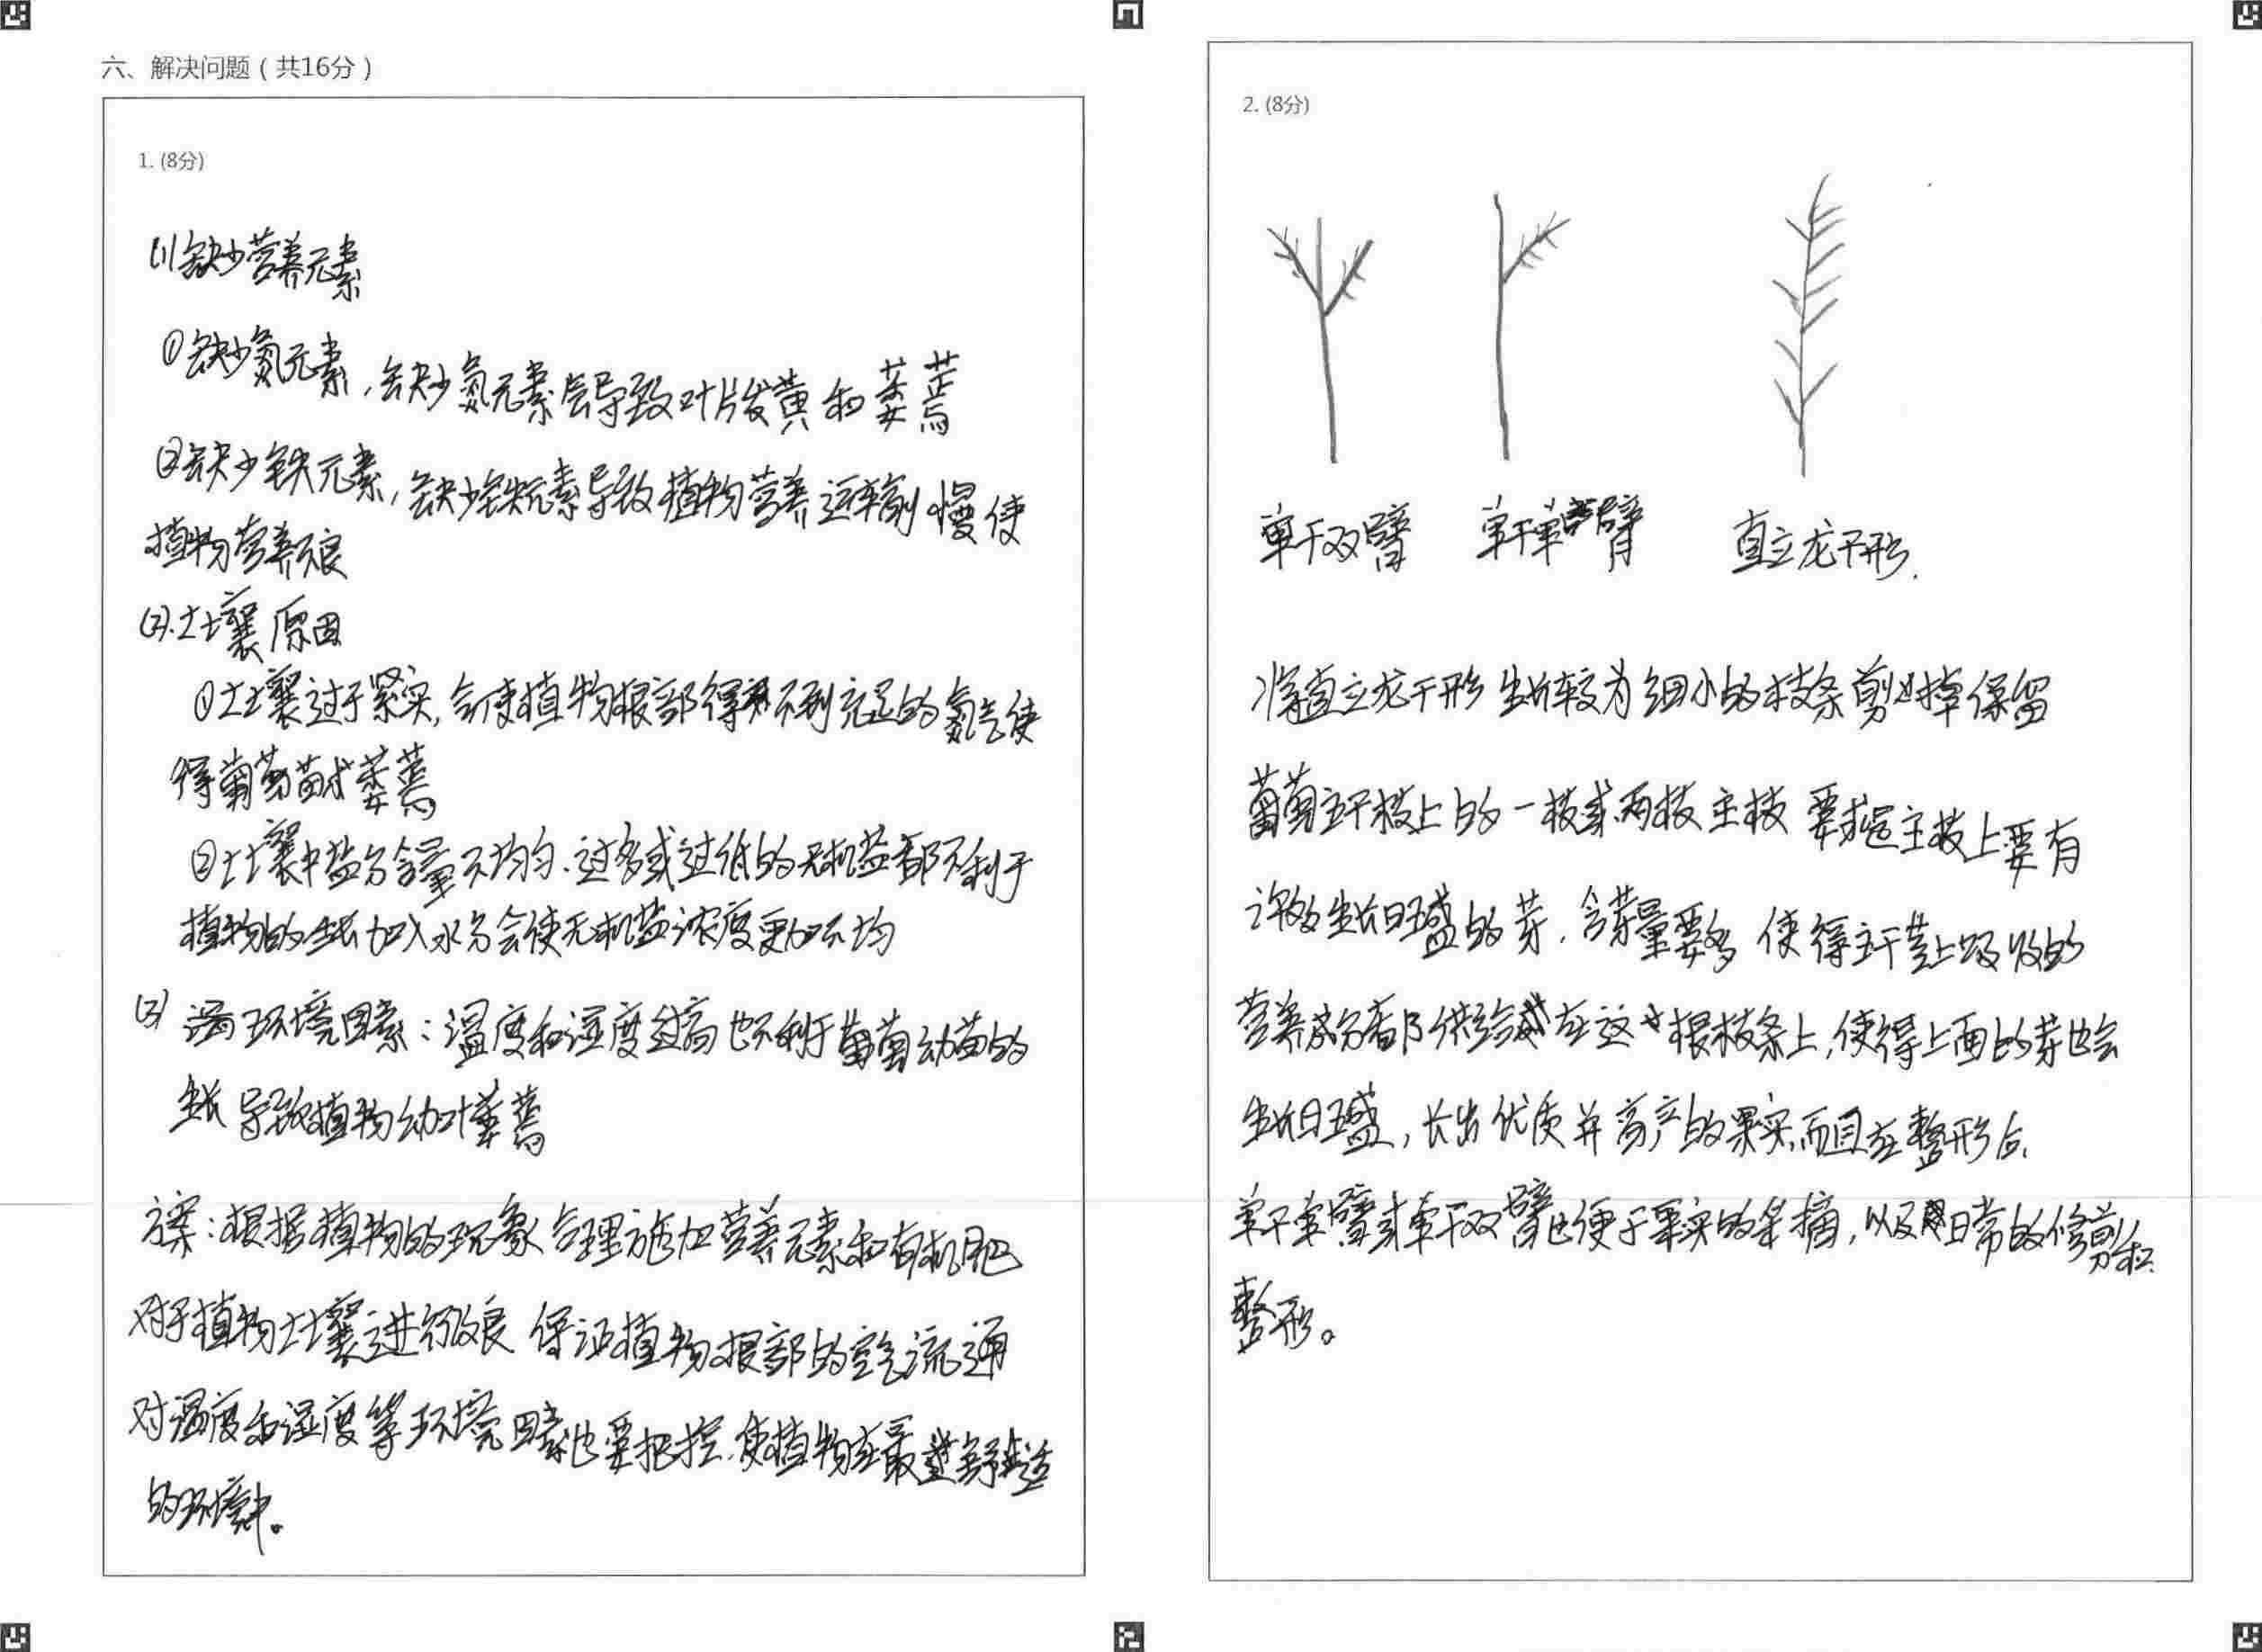 六、解决问题(共16分)
1. (8分)
(1)缺少营养元素
①缺少氮元素,缺少氮元素会导致叶片发黄和萎蔫
②缺少铁元素,缺少铁元素导致植物营养运输慢使
植物营养不良
(2).土壤原因
①土壤过于紧实,会使植物根部得不到充足的氮气使
得葡萄苗木萎蔫
②土壤中盐分含量不均匀.过多或过低的无机盐都不利于
植物的生长加入水分会使无机盐浓度更加不均
(3) 环境因素:温度和湿度过高也不利于葡萄幼苗的
生长 导致植物幼叶萎蔫
方案:根据植物的现象合理施加营养元素和有机肥
对于植物土壤进行改良 保证植物根部的空气流通
对温度和湿度等环境因素也要把控.使植物在最舒适
的环境中。
2. (8分)
单干双臂 单干单臂 直立龙干形.
将直立龙干形生长较为细小的枝条剪掉保留
葡萄主干枝上的一枝或两枝主枝 要求是主枝上要有
许多生长旺盛的芽,含芽量要多 使得主干茎上吸收的
营养成分都供给在这根枝条上,使得上面的芽也会
生长旺盛,长出优质并高产的果实,而且在整形后,
单干单臂或单干双臂也便于果实的采摘,以及日常的修剪和
整形。